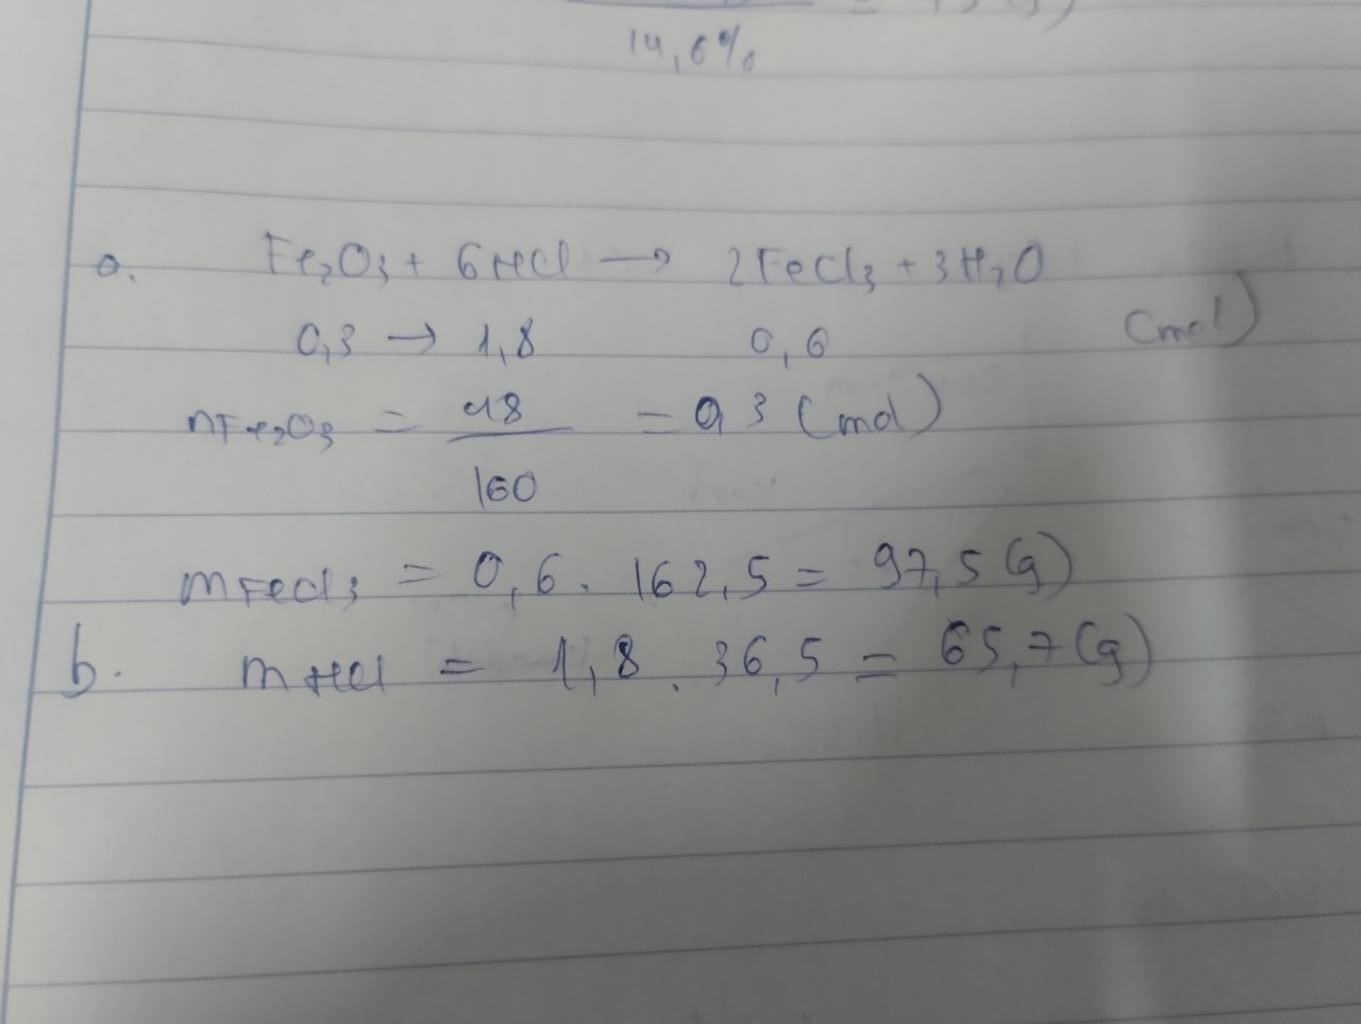 14,6%
a. Fe₂O₃ + 6HCl → 2FeCl₃ + 3H₂O
0,3 → 1,8 0,6 (mol)
nFe₂O₃ = 48/160 = 0,3 (mol)
mFeCl₃ = 0,6 . 162,5 = 97,5 (g)
b. mHCl = 1,8 . 36,5 = 65,7 (g)